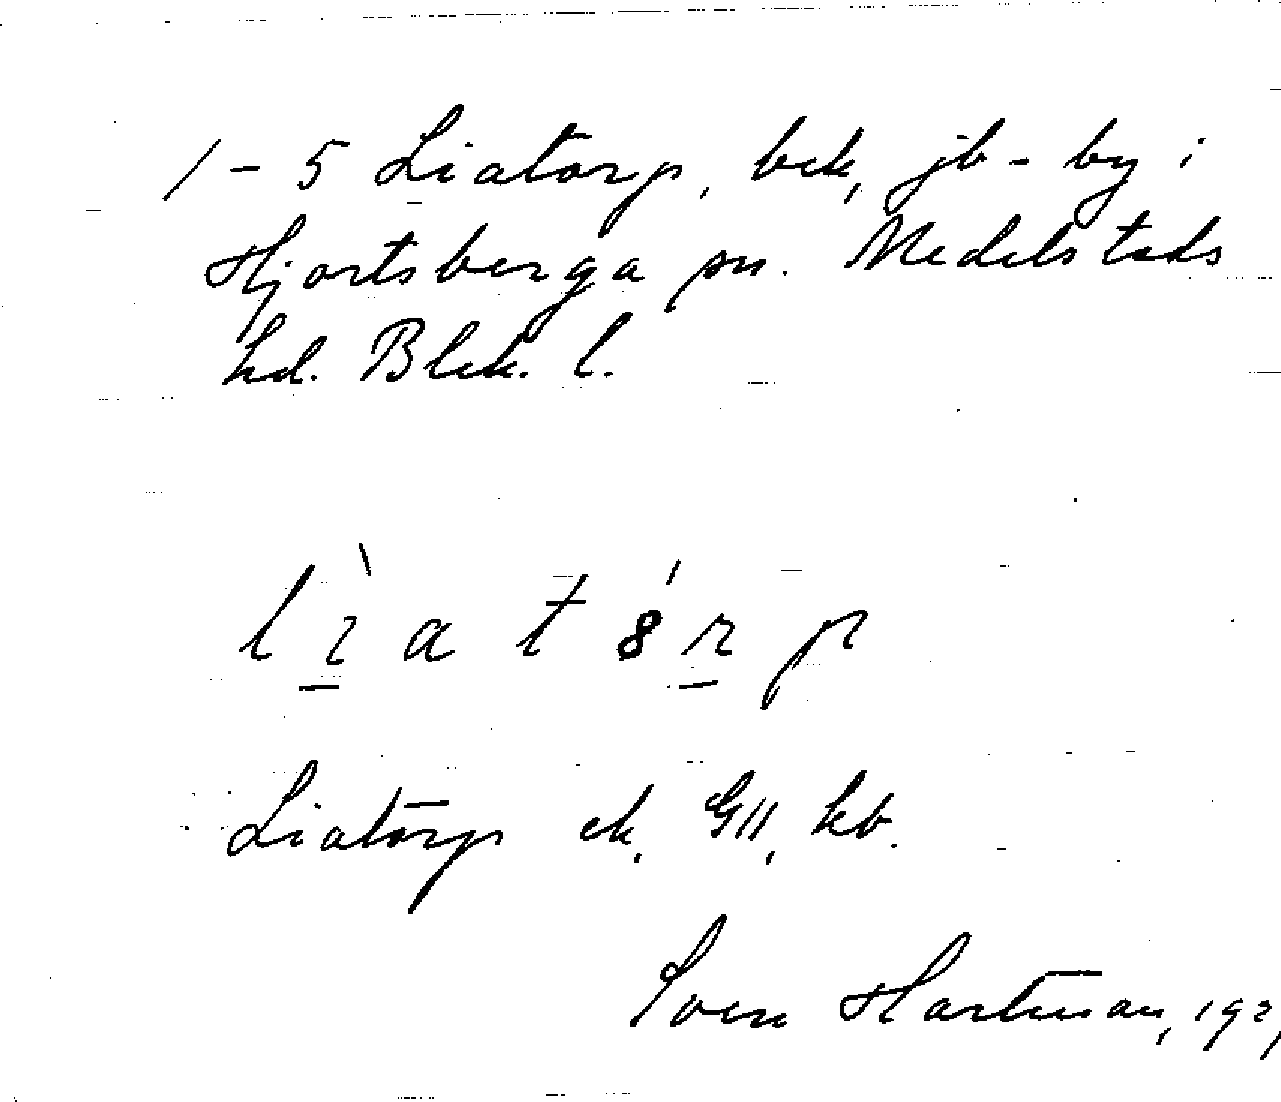 1-5 Liatorp, bck, jb-by i
Hjortsberga sn. Medelstads
hd. Blek. l.
lìatórp
Liatorp ek, GII, kb.
Sven Hartman, 192